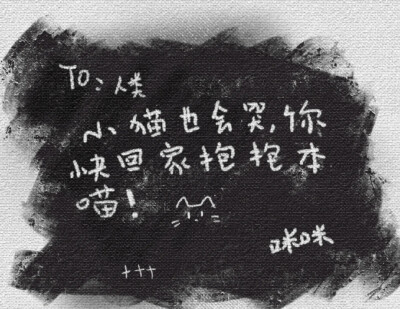 TO：人类
小猫也会哭，你
快回家抱抱本
喵！
咪咪
+++